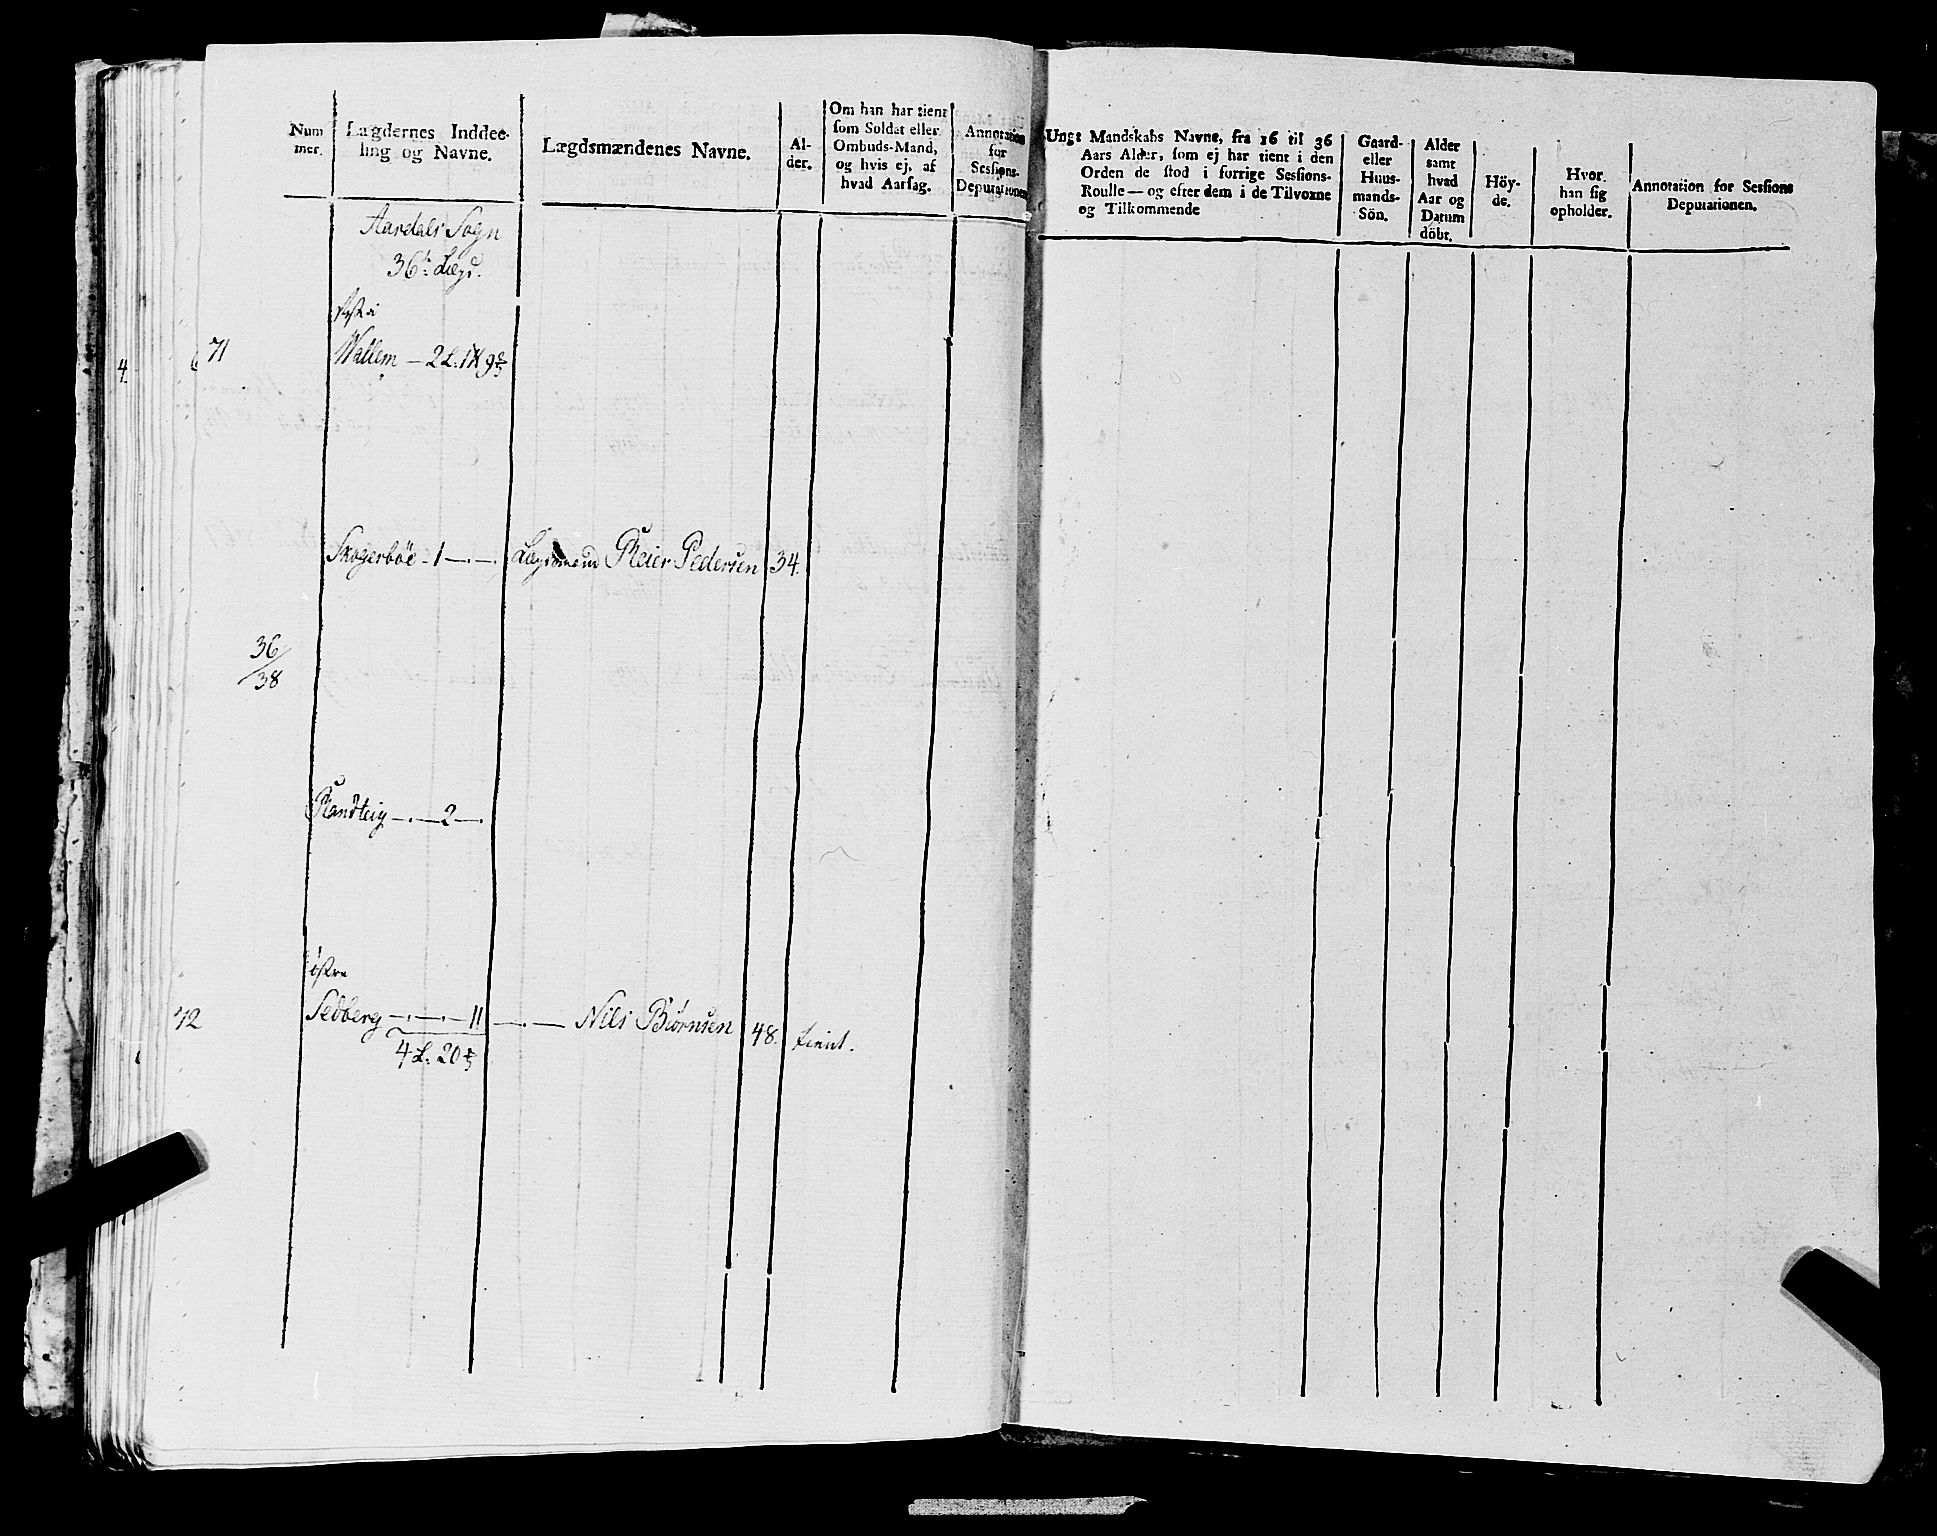 Num
mer.
Lægdernes Inddee-
ling og Navne.
Lægdsmændenes Navne.
Al-
der.
Om han har tient
som Soldat eller
Ombuds-Mand,
og hvis ej, af
hvad Aarsag.
Annotation
for
Sessions-
Deputationen
Ungt Mandskabs Navne, fra 16 til 36
Aars Alder, som ej har tient i den
Orden de stod i forrige Sessions-
Roulle — og efter dem i de Tilvoxne
og Tilkommende
Gaard-
eller
Huus-
mands-
Sön.
Alder
samt
hvad
Aar og
Datum
döbt.
Höy-
de.
Hvor
han sig
opholder.
Annotation for Sessions
Deputationen.
Aardals Sogn
36te Lægd.
71
Wallem — 2 L. 1
4
Skogerböe - 1 —.—. Lægdsmand Reier Pedersen 34.
36
38
Randteig —.— 2 —.
östre
72 Sedberg —.—.— 11 —.— Nils Biörnsen 48. tient.
4 L: 20